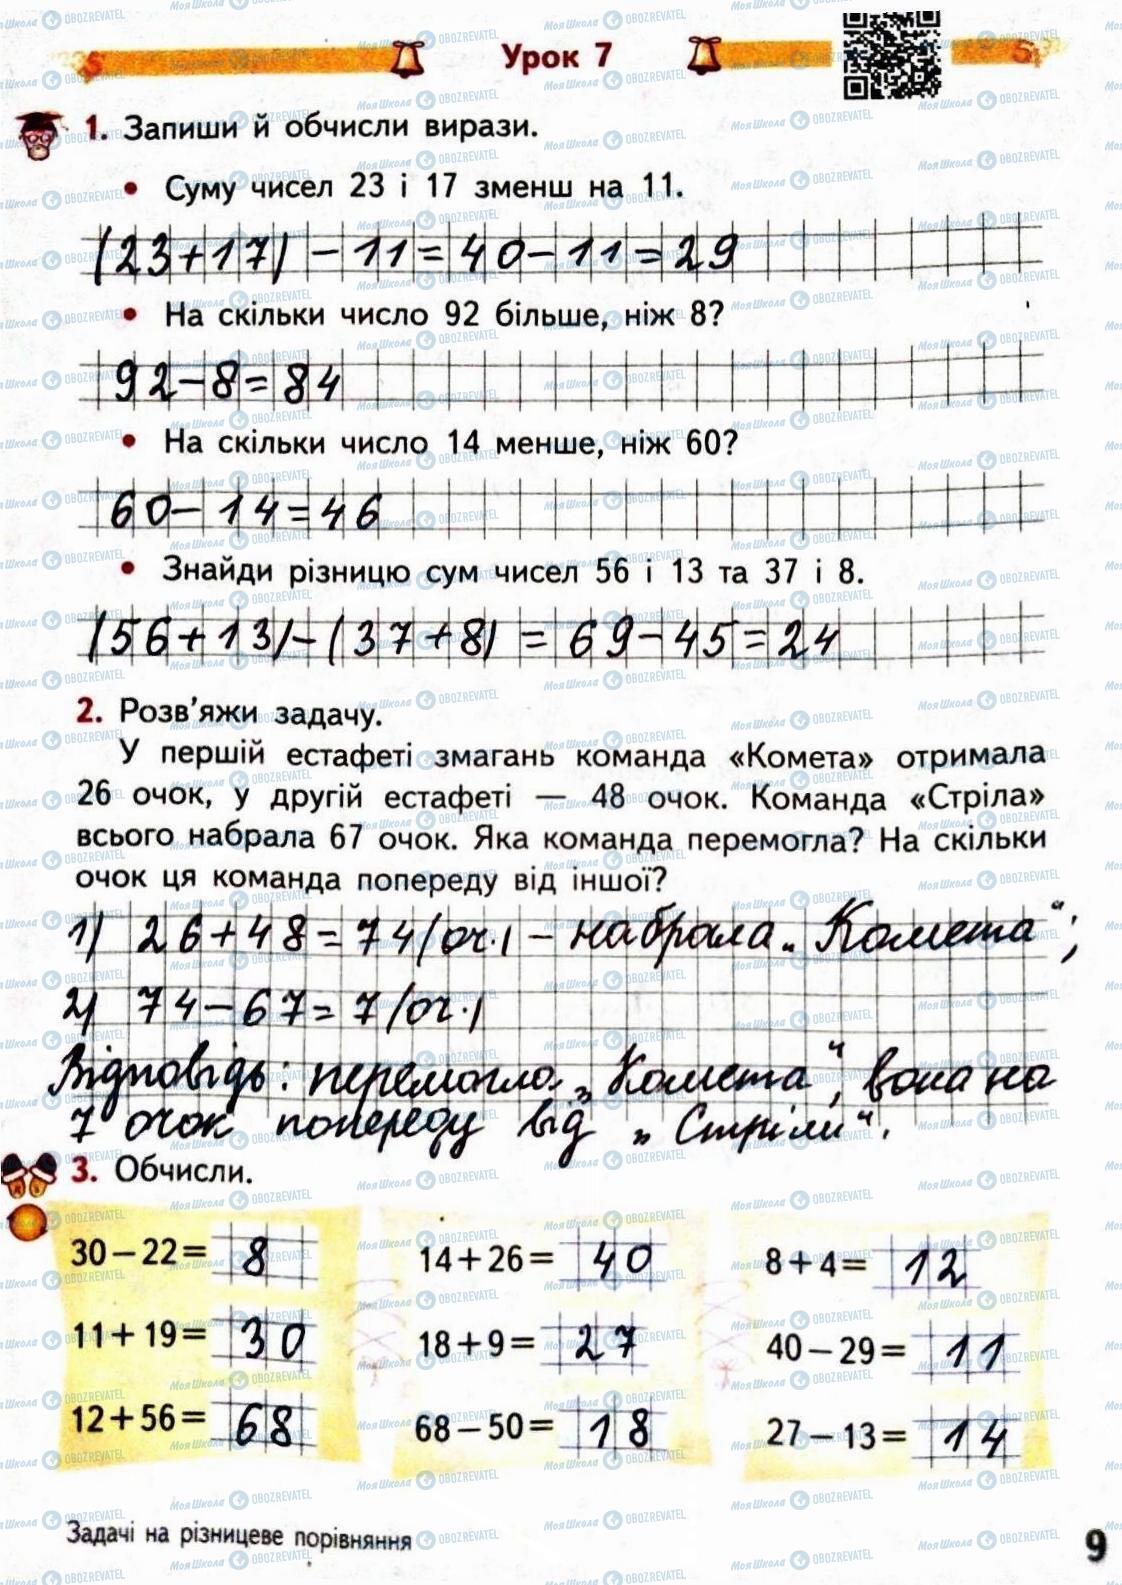 Урок 7
1. Запиши й обчисли вирази.
• Суму чисел 23 і 17 зменш на 11.
(23+17)-11=40-11=29
• На скільки число 92 більше, ніж 8?
92-8=84
• На скільки число 14 менше, ніж 60?
60-14=46
• Знайди різницю сум чисел 56 і 13 та 37 і 8.
(56+13)-(37+8)=69-45=24
2. Розв'яжи задачу.
У першій естафеті змагань команда «Комета» отримала
26 очок, у другій естафеті — 48 очок. Команда «Стріла»
всього набрала 67 очок. Яка команда перемогла? На скільки
очок ця команда попереду від іншої?
1) 26+48=74(оч.) - набрала „Комета";
2) 74-67=7(оч.)
Відповідь: перемогла „Комета", вона на
7 очок попереду від „Стріли".
3. Обчисли.
30-22= 8 14+26= 40 8+4= 12
11+19= 30 18+9= 27 40-29= 11
12+56= 68 68-50= 18 27-13= 14
Задачі на різницеве порівняння
9
МояШкола OBOZREVATEL